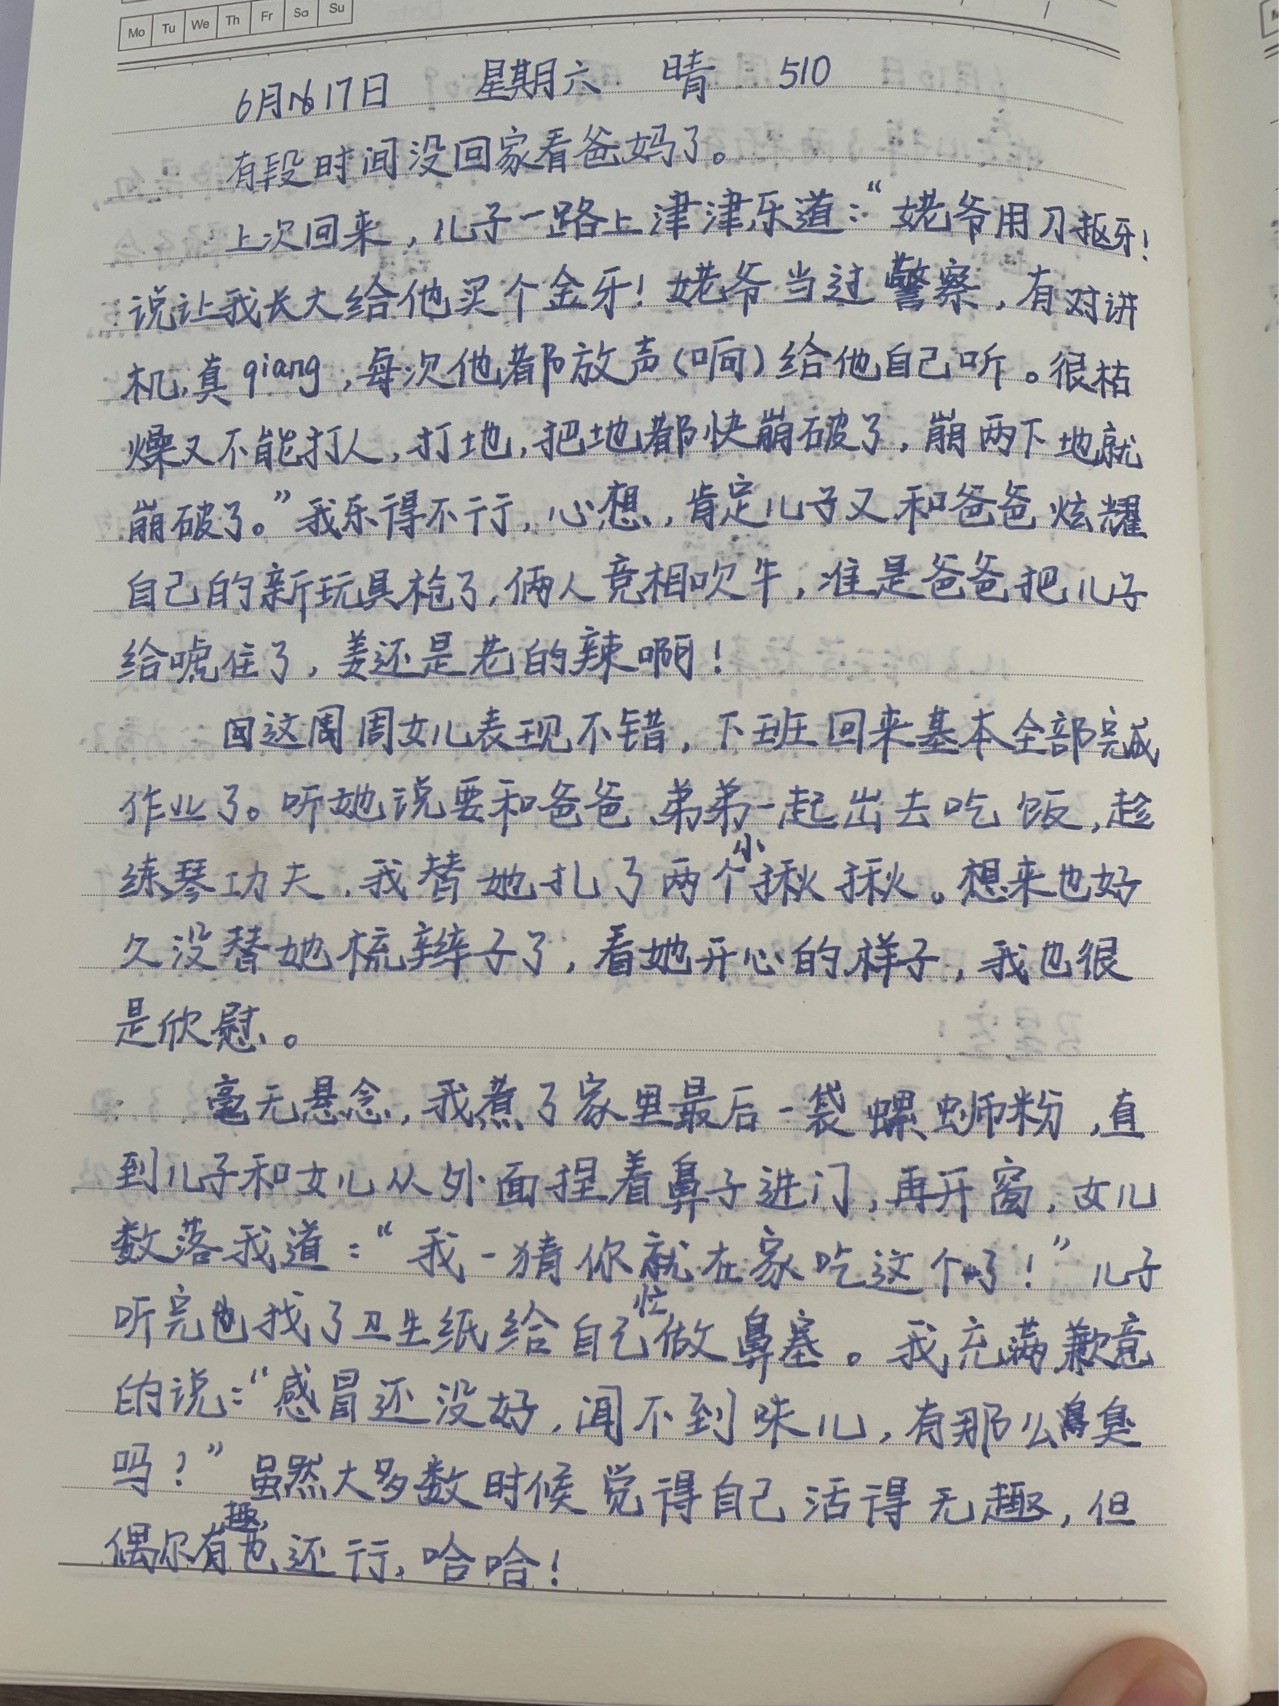 Mo Tu We Th Fr Sa Su
6月17日 星期六 晴 510
有段时间没回家看爸妈了。
上次回来，儿子一路上津津乐道：“姥爷用刀抠牙！
说让我长大给他买个金牙！姥爷当过警察，有对讲
机，真qiang，每次他都放声(响)给他自己听。很枯
燥又不能打人，打地，把地都快崩破了，崩两下地就
崩破了。”我乐得不行，心想，肯定儿子又和爸爸炫耀
自己的新玩具枪了，俩人竞相吹牛，准是爸爸把儿子
给唬住了，姜还是老的辣啊！
因这周周女儿表现不错，下班回来基本全部完成
作业了。听她说要和爸爸、弟弟一起出去吃饭，趁
练琴功夫，我替她扎了两个小揪揪。想来也好
久没替她梳辫子了，看她开心的样子，我也很
是欣慰。
毫无悬念，我煮了家里最后一袋螺蛳粉，直
到儿子和女儿从外面捏着鼻子进门，再开窗，女儿
数落我道：“我一猜你就在家吃这个了！”儿子
听完也找了卫生纸给自己忙做鼻塞。我充满歉意
的说：“感冒还没好，闻不到味儿，有那么臭
吗？”虽然大多数时候觉得自己活得无趣，但
偶尔有趣也还行，哈哈！